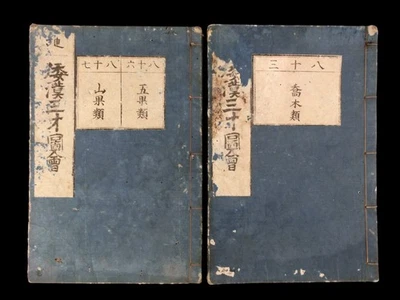 八十三
喬木類
倭漢三才圖會
八十六
五果類
八十七
山果類
倭漢三才圖會